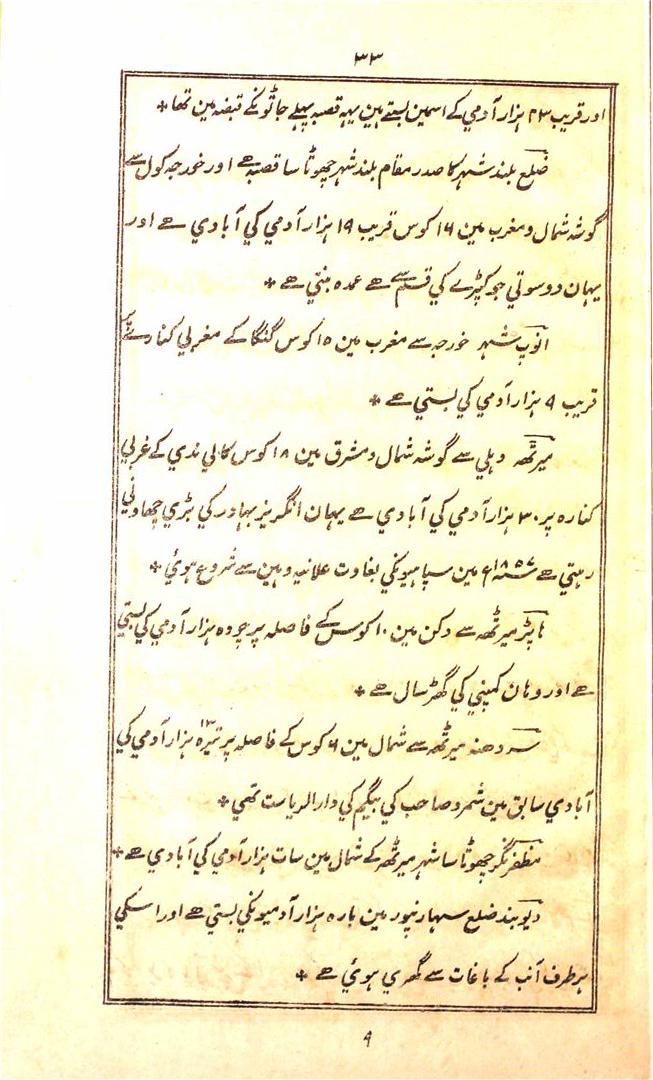 ۳۳
اور قریب ۲۳ ہزار آدمي کے اسمین بستے ہین یہہ قصبہ پہلے جاٹونکے قبضہ مین تھا *
ضلع بلند شہر کا صدر مقام بلند شہر چھوٹا سا قصبہ ہے اور خورجہ کول سے
گوشہ شمال و مغرب مین ۱۶ کوس قریب ۱۹ ہزار آدمي کي آبادي ہے اور
یہان دوسوتي جو کپڑے کي قسم سے ہے عمدہ بنتي ہے *
انوپ شہر خورجہ سے مغرب مین ۱۵ کوس گنگا کے مغربي کنارے پر
قریب ۹ ہزار آدمي کي بستي ہے *
میرٹھہ دہلي سے گوشہ شمال و مشرق مین ۱۸ کوس کالي ندي کے غربي
کنارہ پر ۳۰ ہزار آدمي کي آبادي ہے یہان انگریز بہادر کي بڑي چھاوني
رہتي ہے سنہ ۱۸۵۷ع مین سپاہیونکي بغاوت علانیہ وہین سے شروع ہوئي *
ہاپڑ میرٹھہ سے دکن مین ۱۰ کوس کے فاصلہ پر چودہ ہزار آدمي کي بستي
ہے اور وہان کمپني کي گھڑسال ہے *
سردھنہ میرٹھہ سے شمال مین ۶ کوس کے فاصلہ پر تیرہ ۱۳ ہزار آدمي کي
آبادي سابق مین شمرو صاحب کي بیگم کي دارالریاست تھي *
مظفرنگر چھوٹا سا شہر میرٹھہ کے شمال مین سات ہزار آدمي کي آبادي ہے *
دیوبند ضلع سہارنپور مین بارہ ہزار آدمیونکي بستي ہے اور اسکي
ہر طرف آنب کے باغات سے گھري ہوئي ہے *
۹